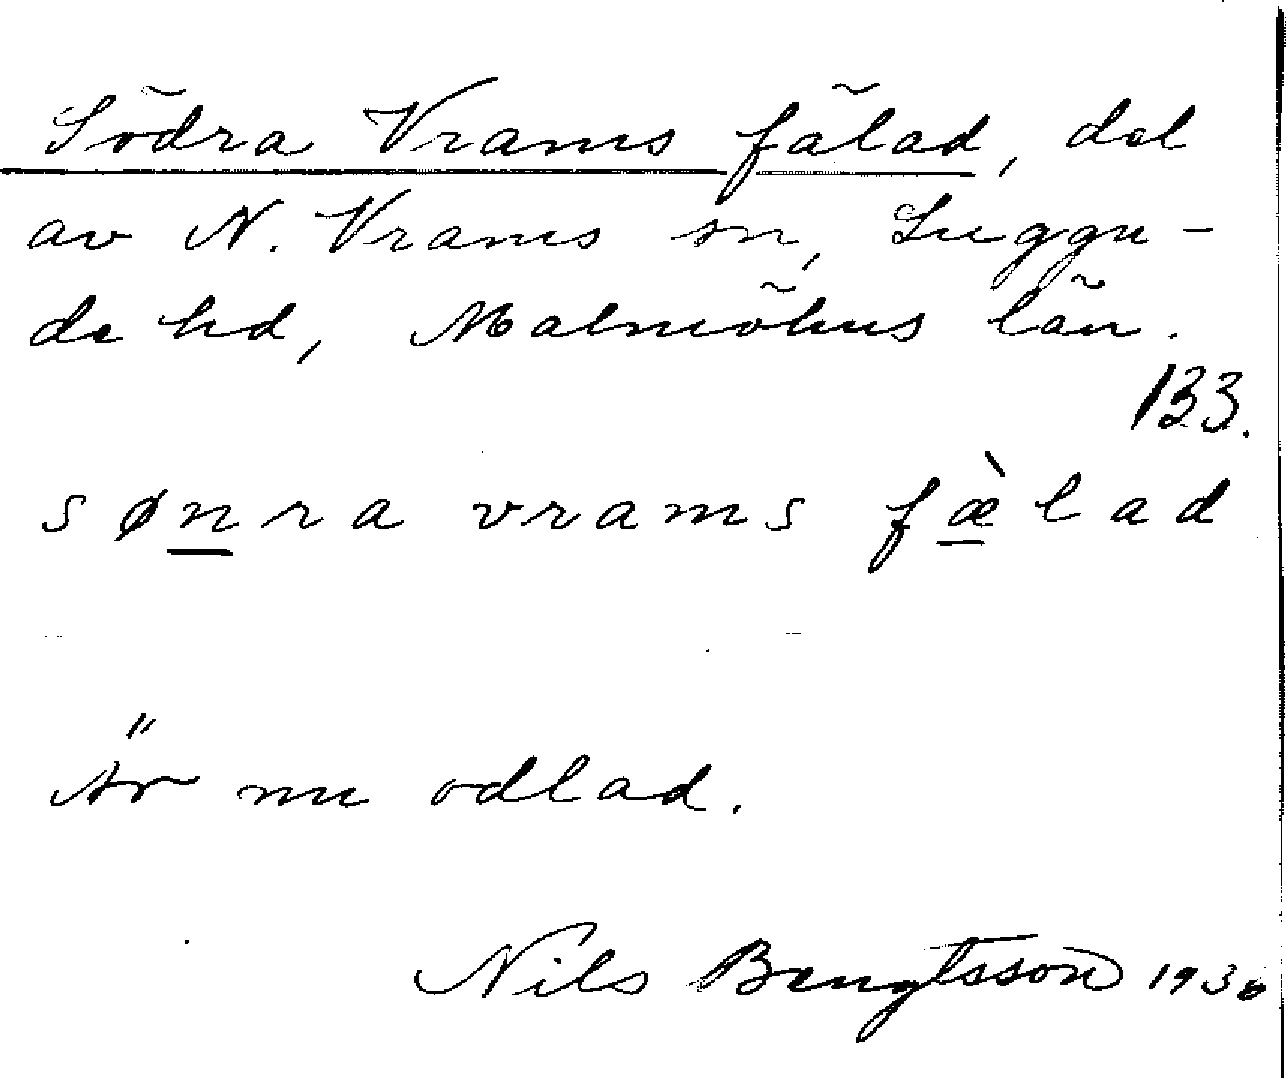 Södra Vrams fälad, del
av N. Vrams sn, Luggu-
de hd, Malmöhus län.
133.
sønra vrams fæ̀lad
Är nu odlad.
Nils Bengtsson 1936